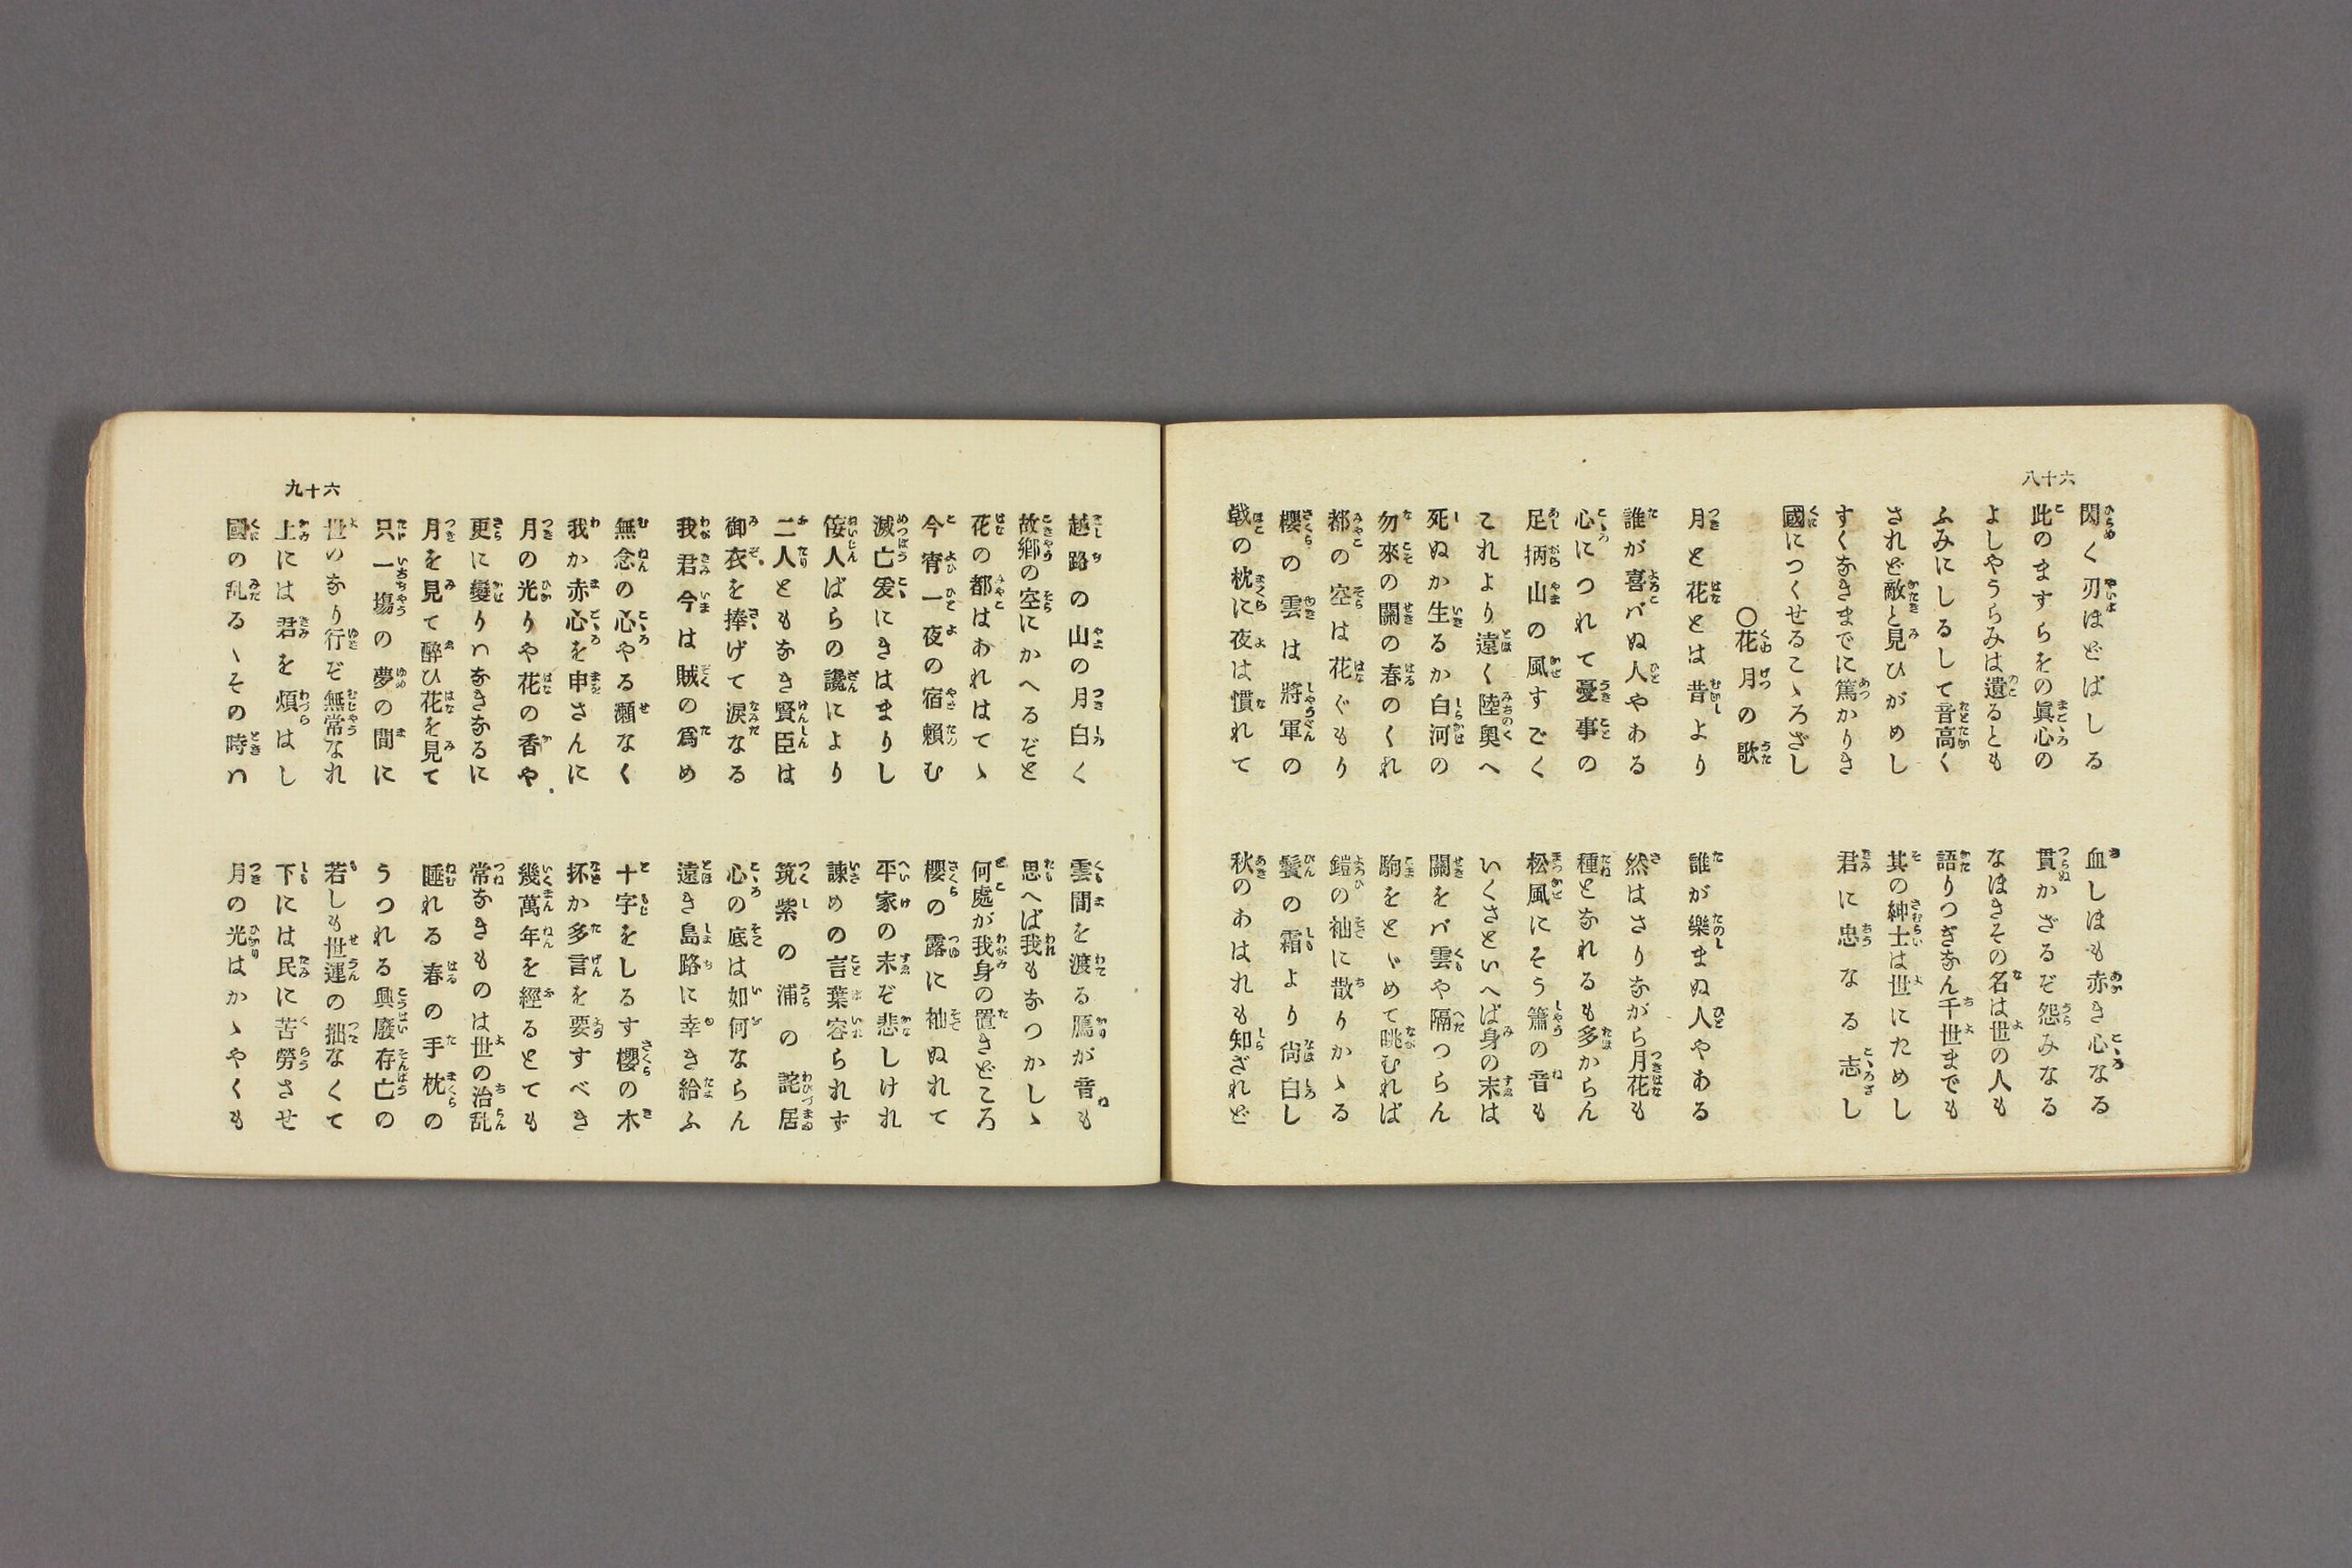 六十八
閃く刃ほどばしる
血しほも赤き心なる
此のますらをの眞心の
貫かざるぞ怨みなる
よしやうらみは遺るとも
なほきその名は世の人も
ふみにしるして音高く
語りつぎなん千世までも
されど敵と見ひがめし
其の紳士は世にためし
すくなきまでに篤かりき
君に忠なる志し
國につくせるこゝろざし
○花月の歌
月と花とは昔より
誰が樂まぬ人やある
誰が喜バぬ人やある
然はさりながら月花も
心につれて憂事の
種となれるも多からん
足柄山の風すごく
松風にそう簫の音も
これより遠く陸奥へ
いくさといへば身の末は
死ぬか生るか白河の
關をバ雲や隔つらん
勿來の關の春のくれ
駒をとゞめて眺むれば
都の空は花ぐもり
鎧の袖に散りかゝる
櫻の雲は將軍の
鬢の霜より尚白し
戟の枕に夜は慣れて
秋のあはれも知ざれど
六十九
越路の山の月白く
雲間を渡る鴈が音も
故郷の空にかへるぞと
思へば我もなつかしゝ
花の都はあれはてゝ
何處が我身の置きどころ
今宵一夜の宿頼む
櫻の露に袖ぬれて
滅亡爰にきはまりし
平家の末ぞ悲しけれ
侫人ばらの讒により
諫めの言葉容られず
二人ともなき賢臣は
筑紫の浦の詫居
御衣を捧げて涙なる
心の底は如何ならん
我君今は賊の爲め
遠き島路に幸き給ふ
無念の心やる瀬なく
十字をしるす櫻の木
我か赤心を申さんに
抔か多言を要すべき
月の光りや花の香や
幾萬年を經るとても
更に變りハなきなるに
常なきものは世の治乱
月を見て醉ひ花を見て
睡れる春の手枕の
只一塲の夢の間に
うつれる興廢存亡の
世のなり行ぞ無常なれ
若しも世運の拙なくて
上には君を煩はし
下には民に苦勞させ
國の乱るゝその時ハ
月の光はかゝやくも